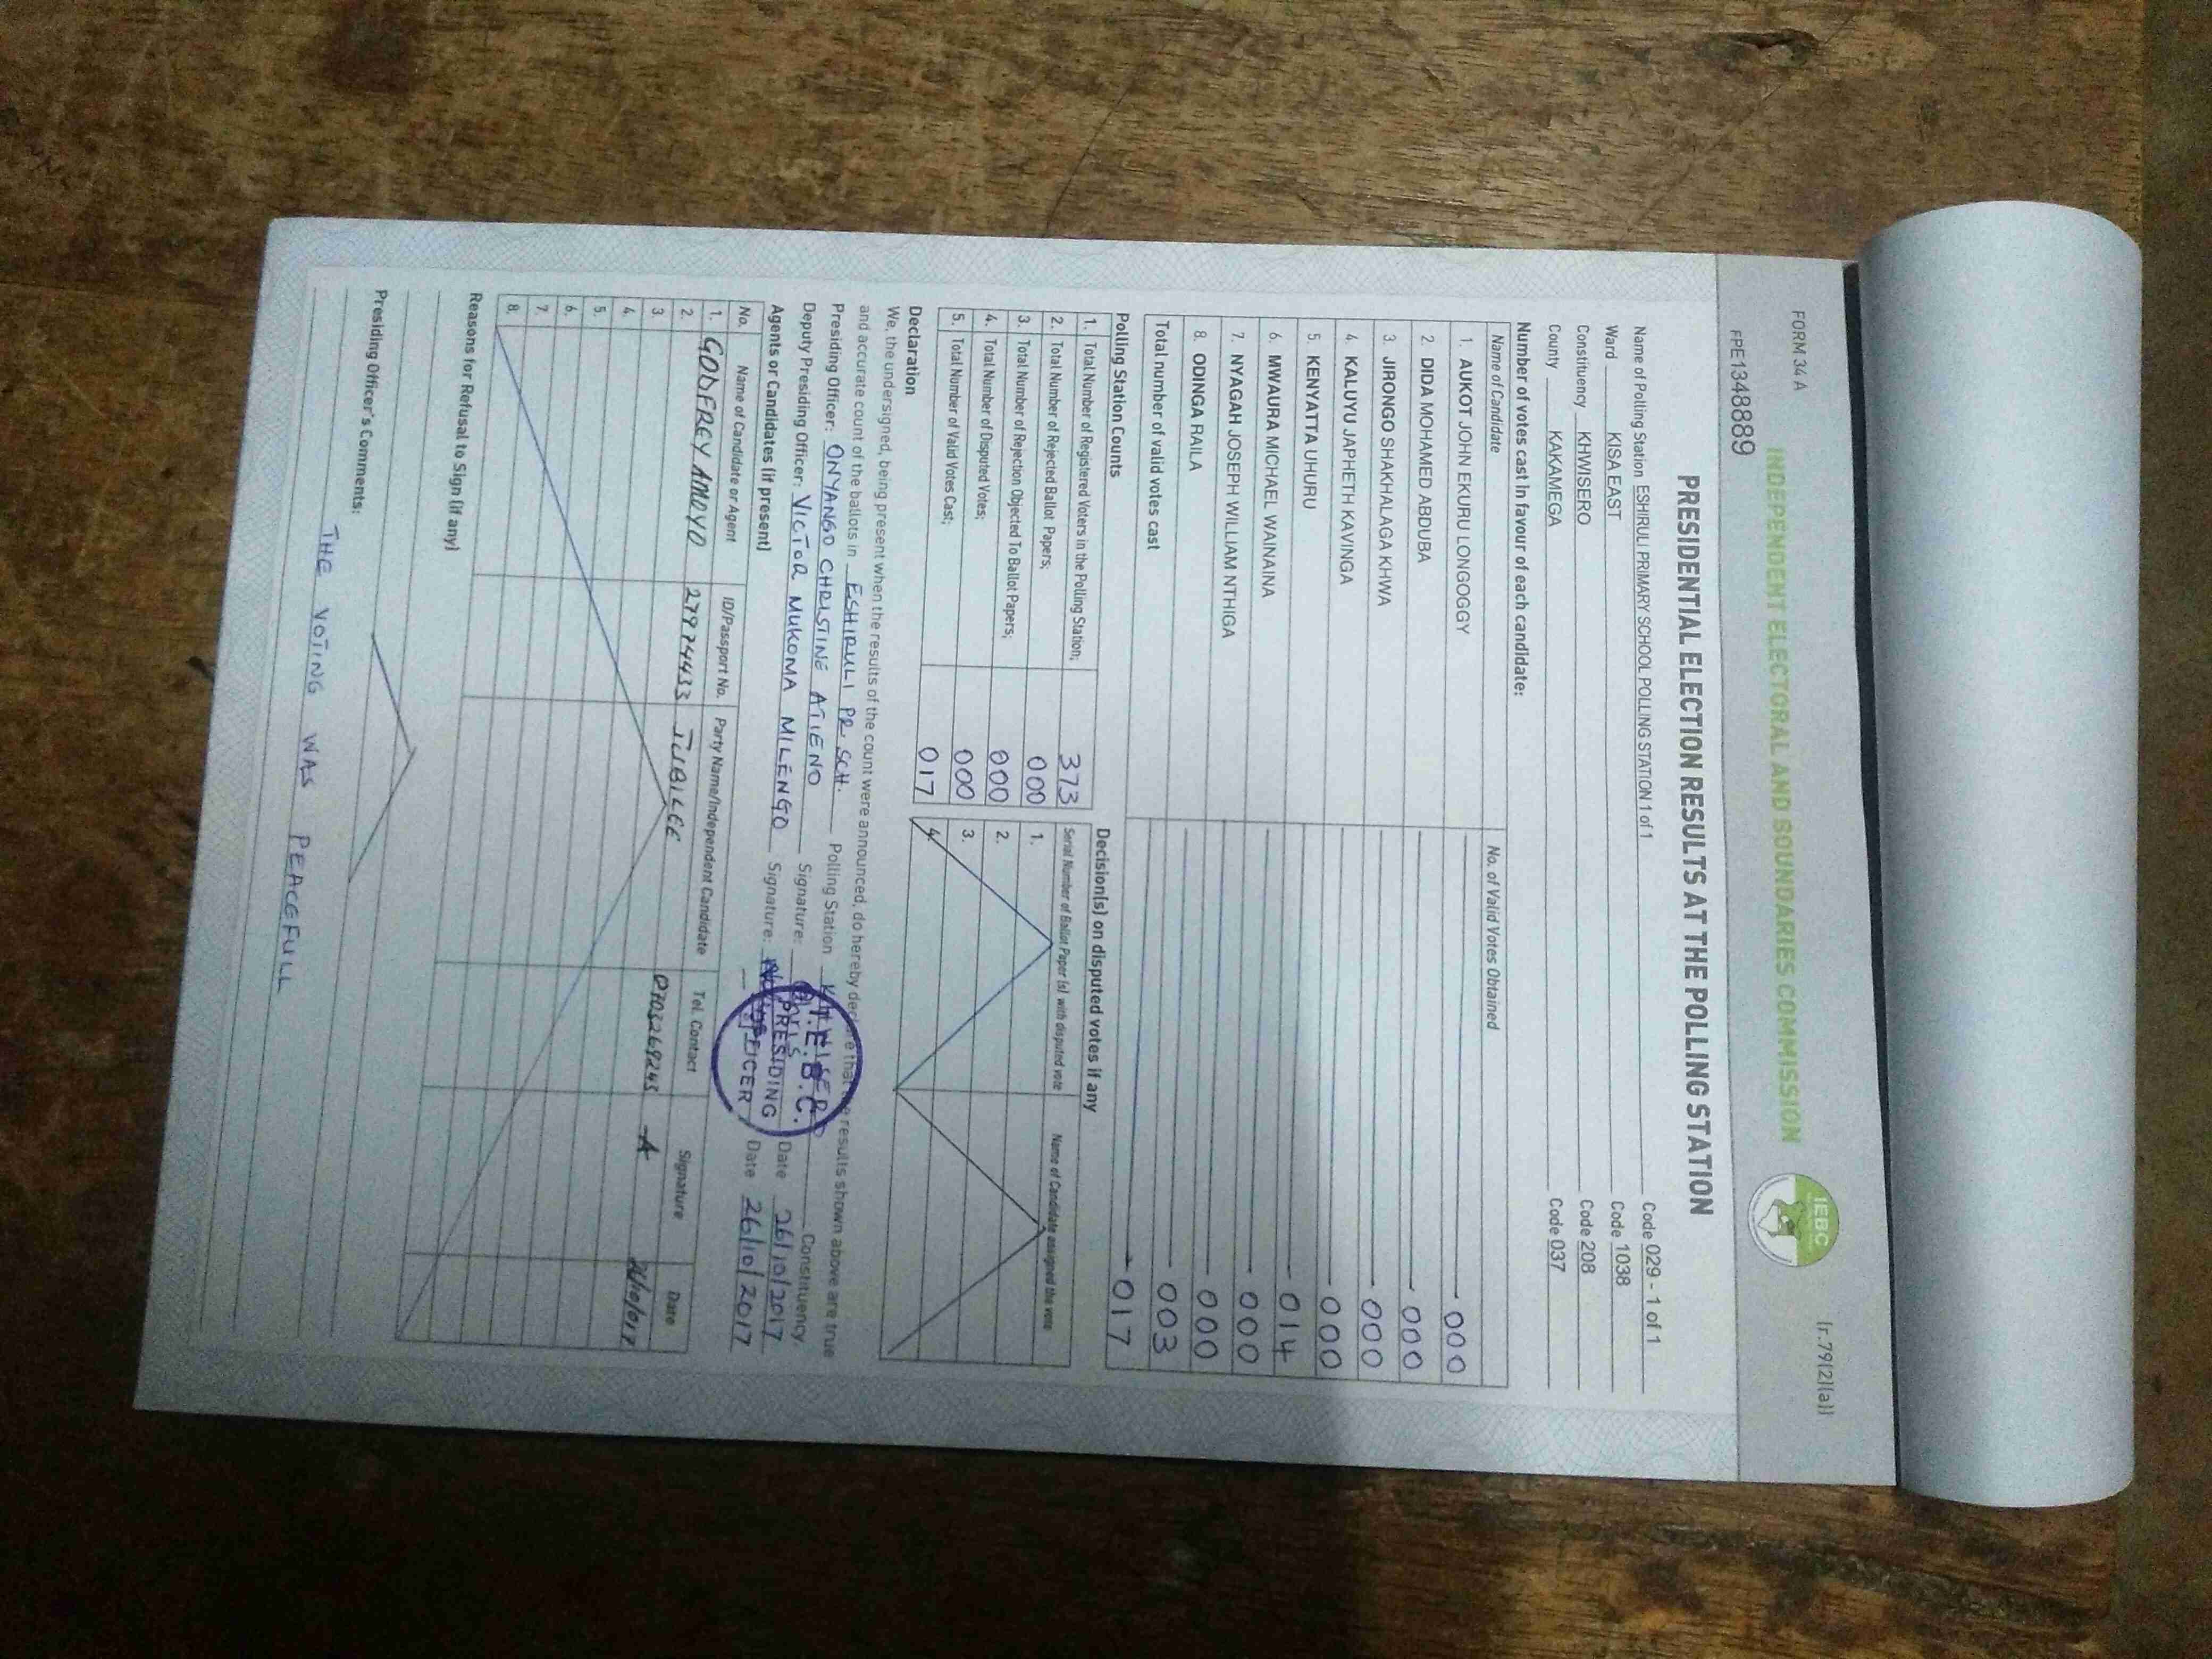 FORM 34 A
INDEPENDENT ELECTORAL AND BOUNDARIES COMMISSION
IEBC
(r.79(2)(a))
FPE1348889
PRESIDENTIAL ELECTION RESULTS AT THE POLLING STATION
Name of Polling Station ESHIRULI PRIMARY SCHOOL POLLING STATION 1 of 1 Code 029 - 1 of 1
Ward KISA EAST Code 1038
Constituency KHWISERO Code 208
County KAKAMEGA Code 037
Number of votes cast in favour of each candidate:
Name of Candidate No. of Valid Votes Obtained
1. AUKOT JOHN EKURU LONGOGGY 000
2. DIDA MOHAMED ABDUBA 000
3. JIRONGO SHAKHALAGA KHWA 000
4. KALUYU JAPHETH KAVINGA 000
5. KENYATTA UHURU 014
6. MWAURA MICHAEL WAINAINA 000
7. NYAGAH JOSEPH WILLIAM NTHIGA 000
8. ODINGA RAILA 003
Total number of valid votes cast 017
Polling Station Counts
1. Total Number of Registered Voters in the Polling Station; 373
2. Total Number of Rejected Ballot Papers; 000
3. Total Number of Rejection Objected To Ballot Papers; 000
4. Total Number of Disputed Votes; 000
5. Total Number of Valid Votes Cast; 017
Decision(s) on disputed votes if any
Serial Number of Ballot Paper (s) with disputed vote Name of Candidate assigned the vote
1.
2.
3.
4.
Declaration
We, the undersigned, being present when the results of the count were announced, do hereby declare that the results shown above are true
and accurate count of the ballots in ESHIRULI PR SCH. Polling Station KHWISERO Constituency.
Presiding Officer: ONYANGO CHRISTINE ATIENO Signature: Date 26/10/2017
Deputy Presiding Officer: VICTOR MUKOMA MILENGO Signature: Date 26/10/2017
I.E.B.C.
PRESIDING
OFFICER
Agents or Candidates (if present)
No. Name of Candidate or Agent ID/Passport No. Party Name/Independent Candidate Tel. Contact Signature Date
1. GODFREY AMOYO 27974433 JUBILEE 0703269243 A 26/10/017
2.
3.
4.
5.
6.
7.
8.
Reasons for Refusal to Sign (if any)
Presiding Officer's Comments:
THE VOTING WAS PEACEFULL